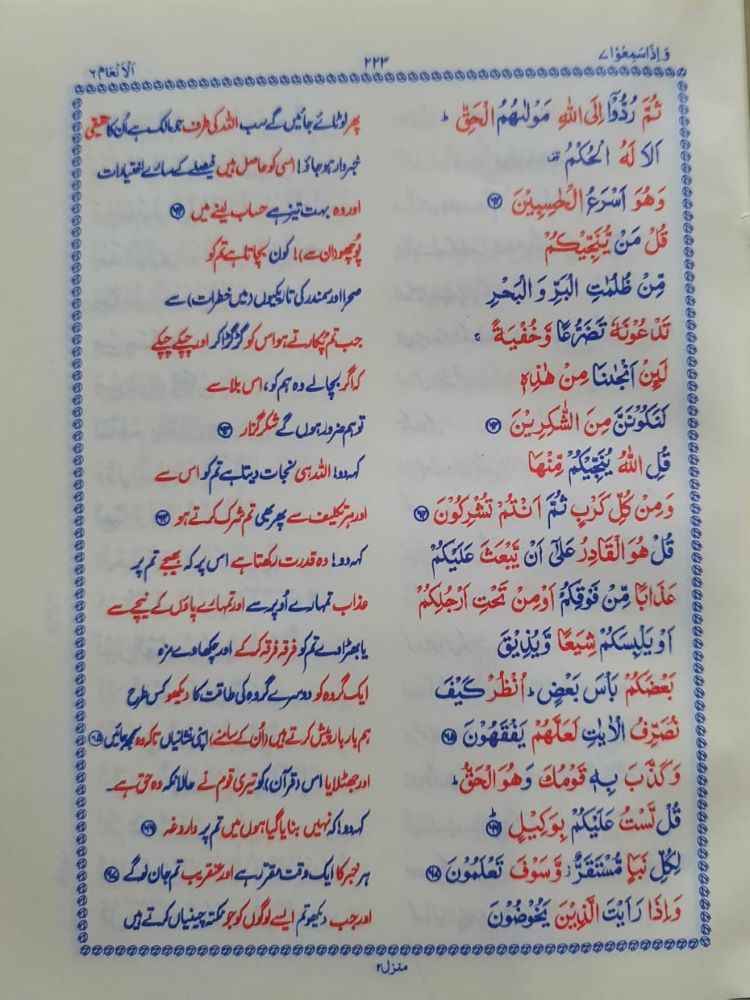 وَاِذَا سَمِعُوْا ٧ ٢٢٣ اَلْاَنْعَام ٦
ثُمَّ رُدُّوْٓا اِلَى اللّٰهِ مَوْلٰىهُمُ الْحَقِّ ؕ پھر لوٹائے جائیں گے سب اللہ کی طرف جو مالک ہے اُن کا حقیقی
اَلَا لَهُ الْحُكْمُ خبردار ہو جاؤ! اسی کو حاصل ہیں فیصلے کے سارے اختیارات
وَهُوَ اَسْرَعُ الْحٰسِبِيْنَ ﴿٦٢﴾ اور وہ بہت تیز ہے حساب لینے میں ﴿٦٢﴾
قُلْ مَنْ يُّنَجِّيْكُمْ پُوچھو (ان سے)! کون بچاتا ہے تم کو
مِّنْ ظُلُمٰتِ الْبَرِّ وَالْبَحْرِ صحرا اور سمندر کی تاریکیوں (میں خطرات) سے
تَدْعُوْنَهٗ تَضَرُّعًا وَّخُفْيَةً ۚ جب تم پُکارتے ہو اس کو گڑگڑا کر اور چُپکے چُپکے
لَئِنْ اَنْجٰىنَا مِنْ هٰذِهٖ کہ اگر بچا لے وہ ہم کو، اس بلا سے
لَنَكُوْنَنَّ مِنَ الشّٰكِرِيْنَ ﴿٦٣﴾ تو ہم ضرور ہوں گے شکر گزار ﴿٦٣﴾
قُلِ اللّٰهُ يُنَجِّيْكُمْ مِّنْهَا کہہ دو! اللہ ہی نجات دیتا ہے تم کو اس سے
وَمِنْ كُلِّ كَرْبٍ ثُمَّ اَنْتُمْ تُشْرِكُوْنَ ﴿٦٤﴾ اور ہر تکلیف سے پھر بھی تم شرک کرتے ہو ﴿٦٤﴾
قُلْ هُوَ الْقَادِرُ عَلٰٓى اَنْ يَّبْعَثَ عَلَيْكُمْ کہہ دو! وہ قدرت رکھتا ہے اس پر کہ بھیجے تم پر
عَذَابًا مِّنْ فَوْقِكُمْ اَوْ مِنْ تَحْتِ اَرْجُلِكُمْ عذاب تمہارے اُوپر سے اور تمہارے پاؤں کے نیچے سے
اَوْ يَلْبِسَكُمْ شِيَعًا وَّيُذِيْقَ یا بھڑا دے تم کو فرقہ فرقہ کر کے اور چکھا دے مزہ
بَعْضَكُمْ بَاْسَ بَعْضٍ ؕ اُنْظُرْ كَيْفَ ایک گروہ کو دوسرے گروہ کی طاقت کا دیکھو کس طرح
نُصَرِّفُ الْاٰيٰتِ لَعَلَّهُمْ يَفْقَهُوْنَ ﴿٦٥﴾ ہم بار بار پیش کرتے ہیں (اُن کے سامنے) اپنی نشانیاں تاکہ وہ سمجھ جائیں ﴿٦٥﴾
وَكَذَّبَ بِهٖ قَوْمُكَ وَهُوَ الْحَقُّ ؕ اور جھٹلایا اس (قرآن) کو تیری قوم نے حالانکہ وہ حق ہے۔
قُلْ لَّسْتُ عَلَيْكُمْ بِوَكِيْلٍ ﴿٦٦﴾ کہہ دو! کہ نہیں بنایا گیا ہوں میں تم پر داروغہ ﴿٦٦﴾
لِكُلِّ نَبَاٍ مُّسْتَقَرٌّ ۚ وَّسَوْفَ تَعْلَمُوْنَ ﴿٦٧﴾ ہر خبر کا ایک وقت مقرر ہے اور عنقریب تم جان لو گے ﴿٦٧﴾
وَاِذَا رَاَيْتَ الَّذِيْنَ يَخُوْضُوْنَ اور جب دیکھو تم ایسے لوگوں کو جو نکتہ چینیاں کرتے ہیں
منزل ٢